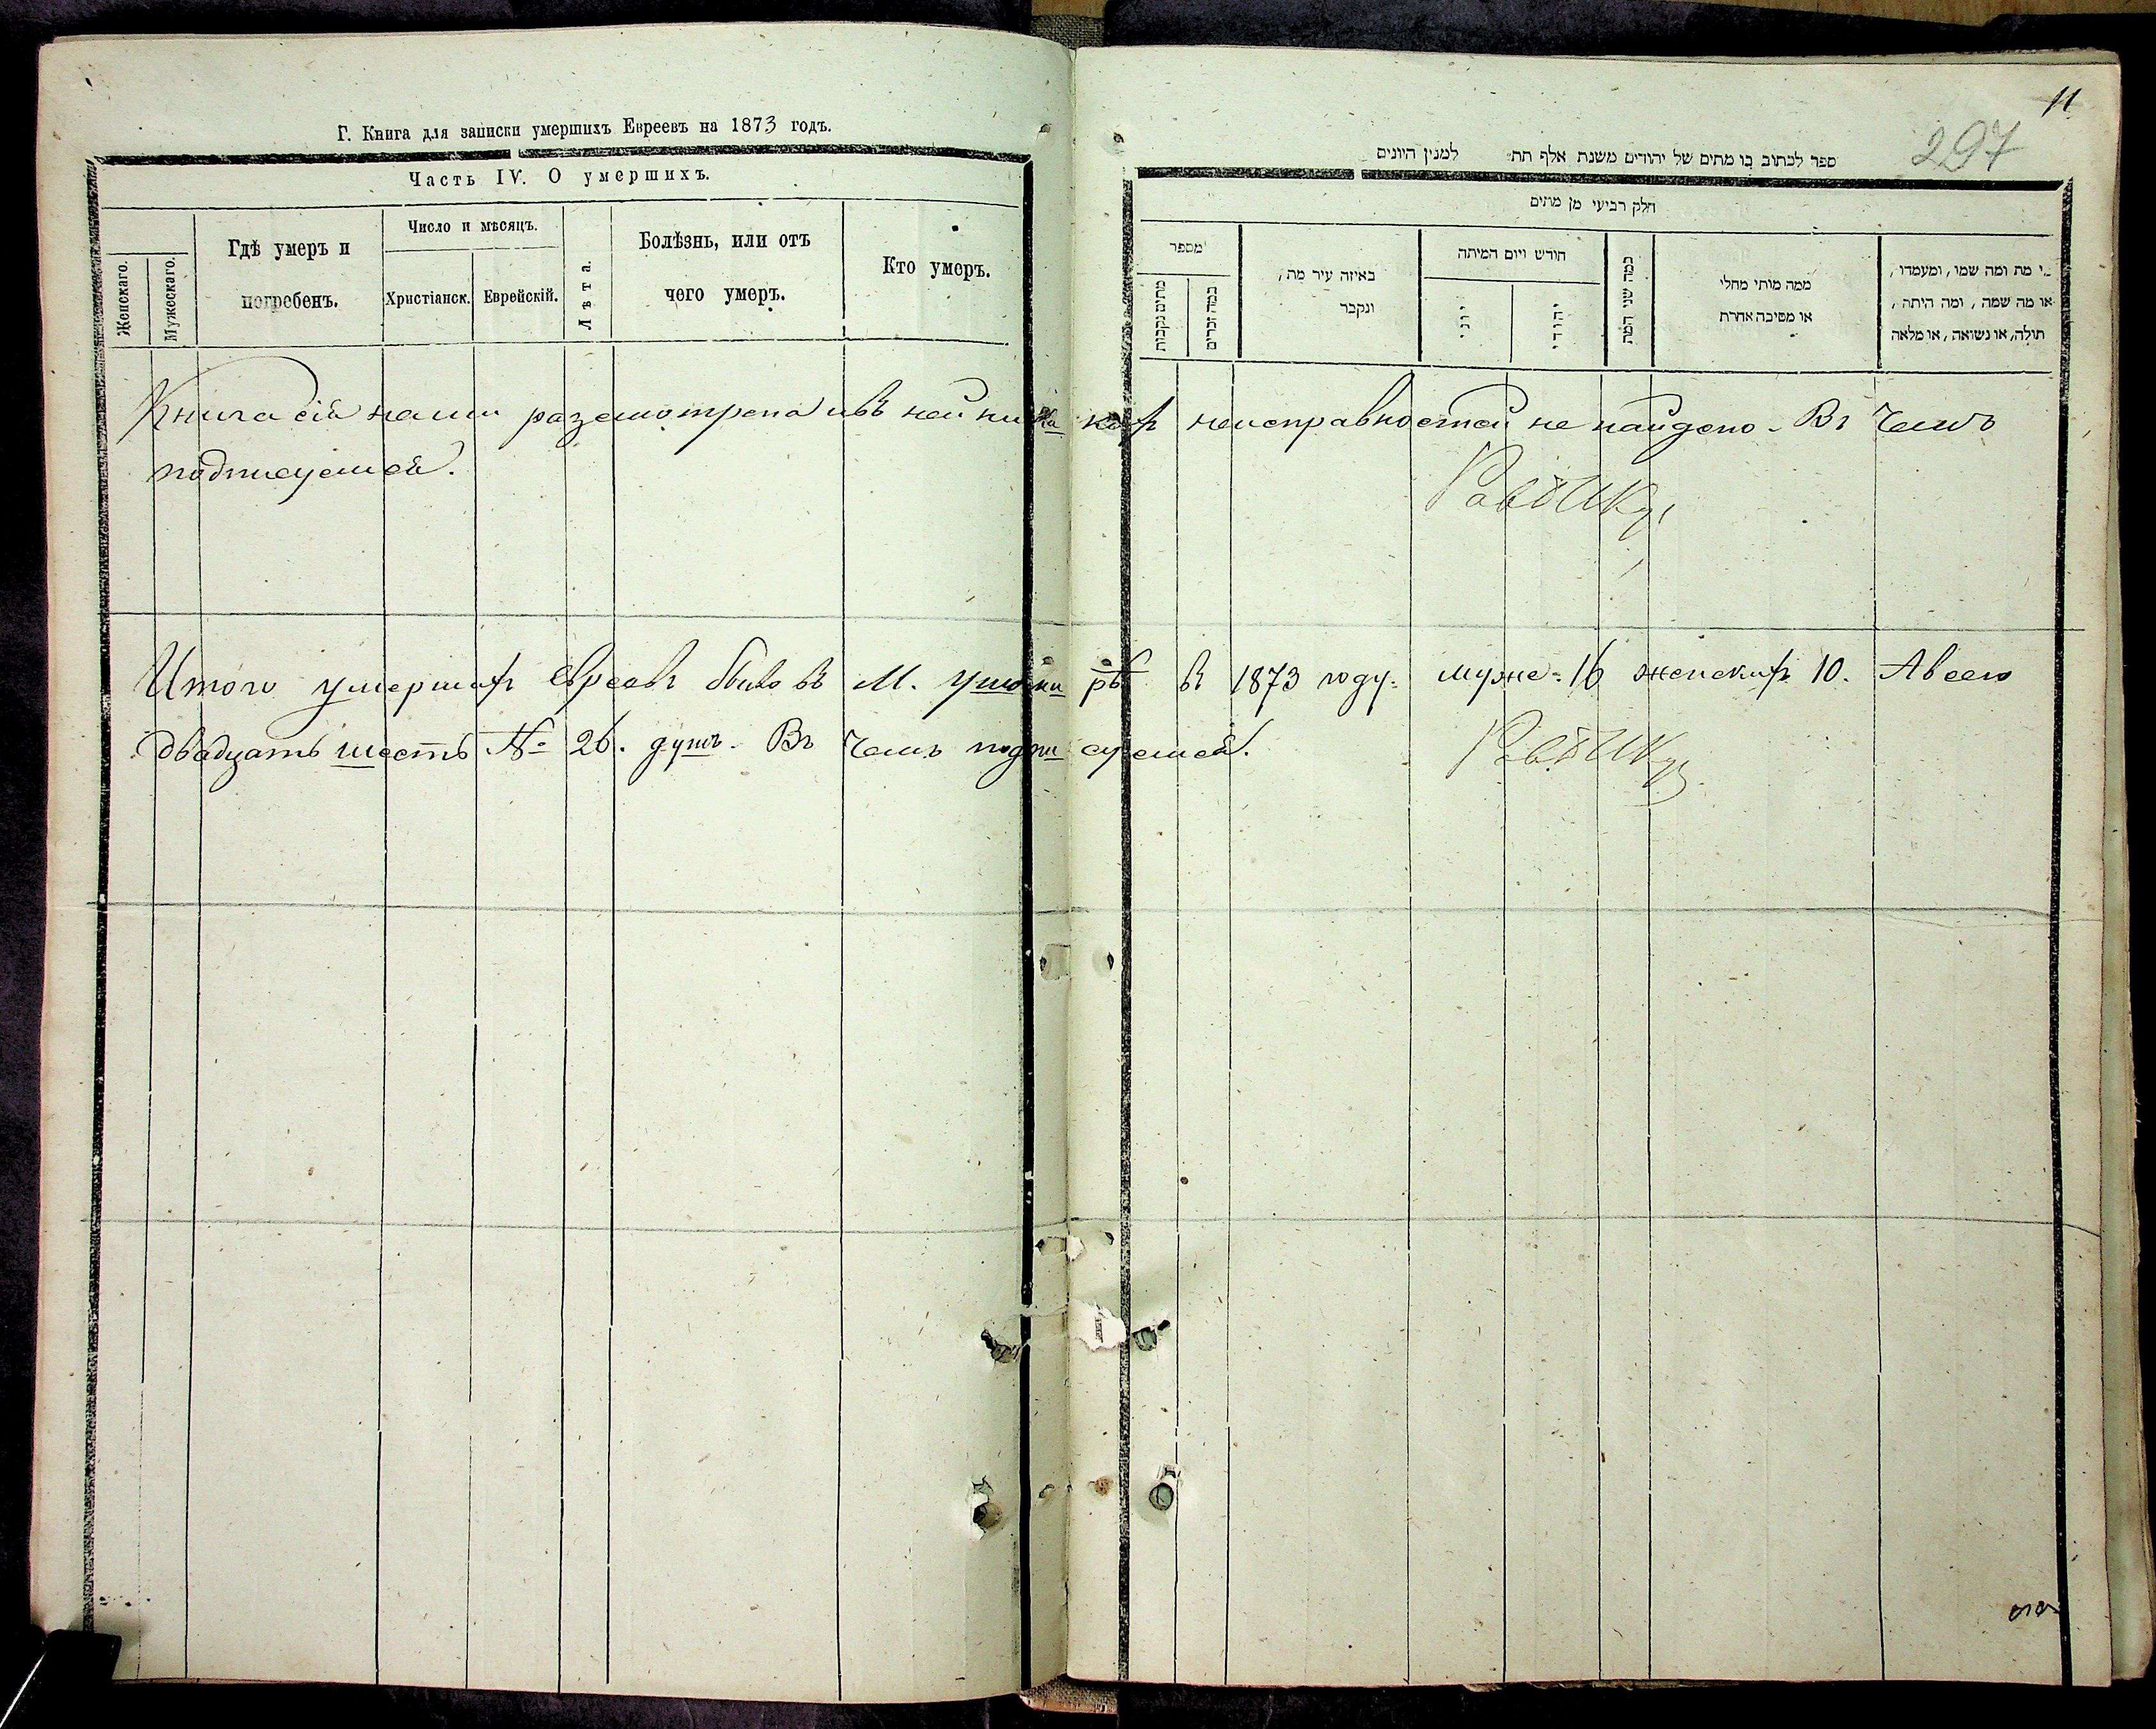 Г. Книга для записки умершихъ Евреевъ на 1873 годъ.
Часть IV. О умершихъ.
Женскаго.
Мужескаго.
Гдѣ умеръ и
погребенъ.
Число и мѣсяцъ.
Христіанск.
Еврейскій.
Лѣта.
Болѣзнь, или отъ
чего умеръ.
Кто умеръ.
11
297
ספר לכתוב בו מתים של יהודים משנת אלף תת למנין היונים
חלק רביעי מן מתים
מספר
מתים נקבות
כמה זכרים
באיזה עיר מת,
ונקבר
חודש ויום המיתה
יוני
יהודי
כמה שני המת
ממה מותי מחלי
או מסיבה אחרת
מי מת ומה שמו, ומעמדו,
או מה שמה, ומה היתה,
תולה, או נשואה, או מלאה
Книга сія нами разсмотрена и въ ней никакихъ неисправностей не найдено. Въ чемъ
подписуемся.
Итого умершихъ евреевъ было въ М. въ 1873 году: муже= 16 женскихъ 10. А всего
двадцать шесть № 26. душъ. Въ чемъ подписуемся.